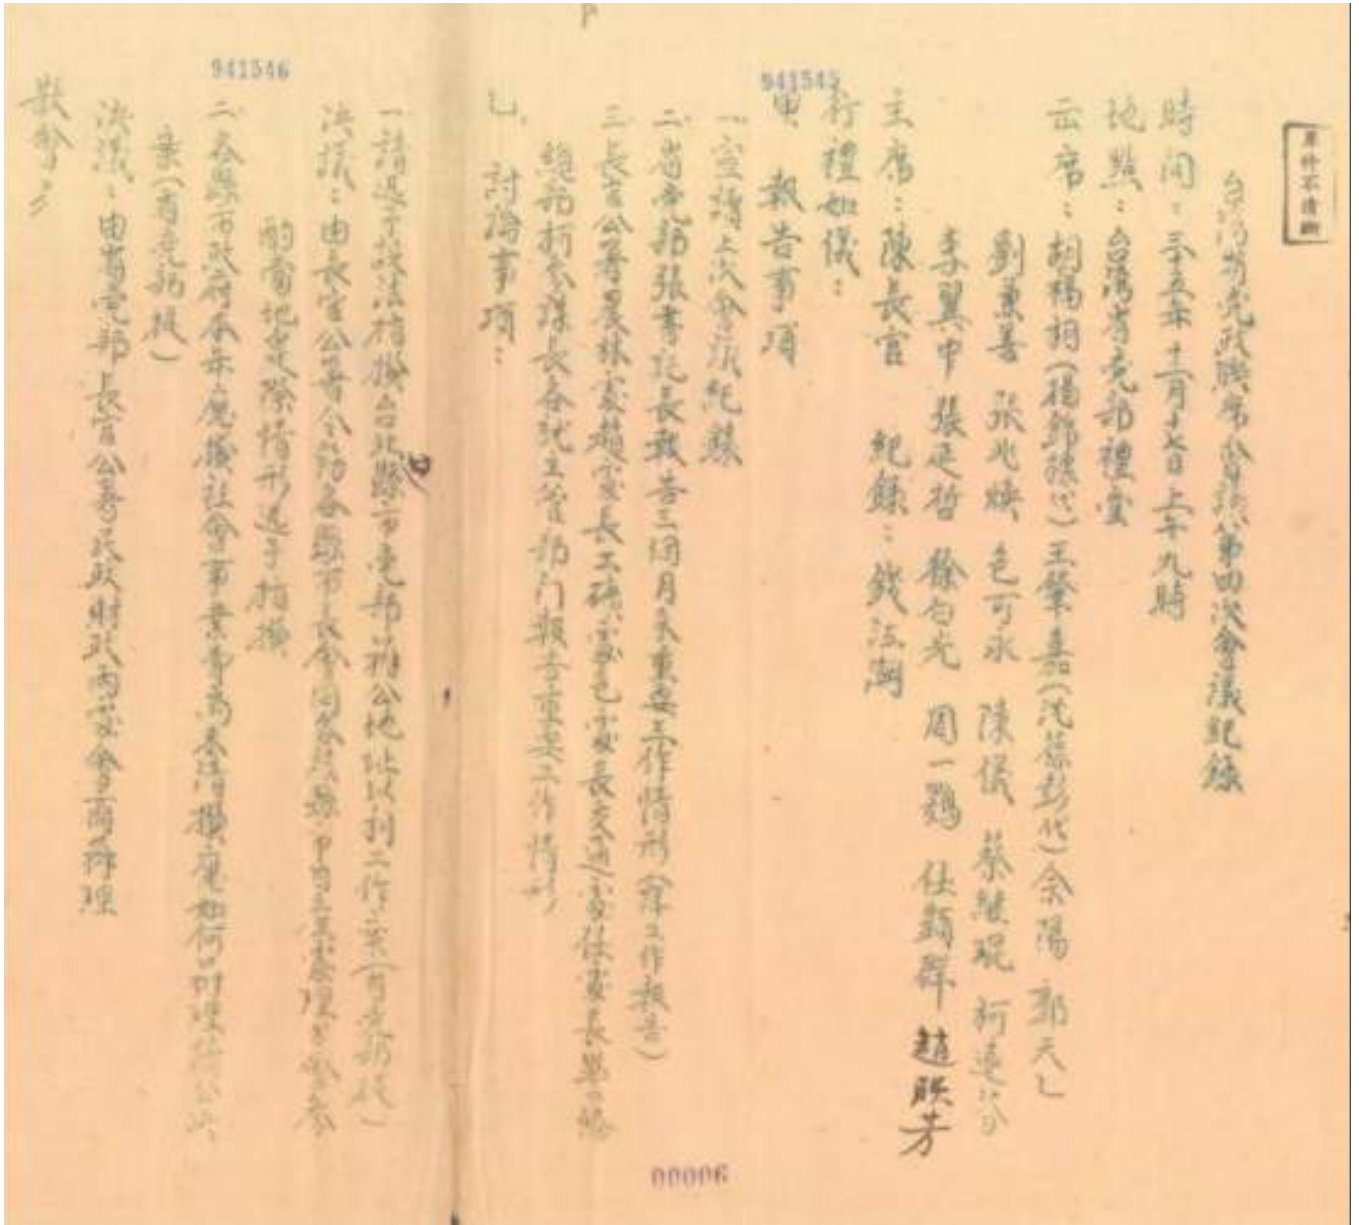 原件不清晰
台灣省党政聯席會議第四次會議紀錄
時間：三十五年十二月十七日上午九時
地點：台灣省党部禮堂
出席：胡福相（楊錦樑代）王肇嘉（沈葆彭代）余陽 郭天乙
劉兼善 張兆煥 包可永 陳儀 蔡繼琨 柯遠芬
李翼中 張延哲 徐白光 周一鶚 任顯群 趙映芳
主席：陳長官 紀錄：錢江潮
行禮如儀：
甲 報告事項
一、宣讀上次會議紀錄
二、省党部張書記長報告三個月來重要工作情形（詳工作報告）
三、長官公署農林處趙處長工礦處包處長交通處任處長警備
總部柯參謀長各就主管部門報告重要工作情形
乙、討論事項：
一、請迅予設法指撥台北縣市党部辦公地址以利工作案（省党部提）
決議：由長官公署令飭各縣市長會同各該縣市
酌當地實際情形迅予指撥
二、各縣市政府本年應撥社會事業費尚未清撥應如何
案（省党部提）
決議：由省党部長官公署民政財政兩處會商辦理
散會
941545
941546
00006